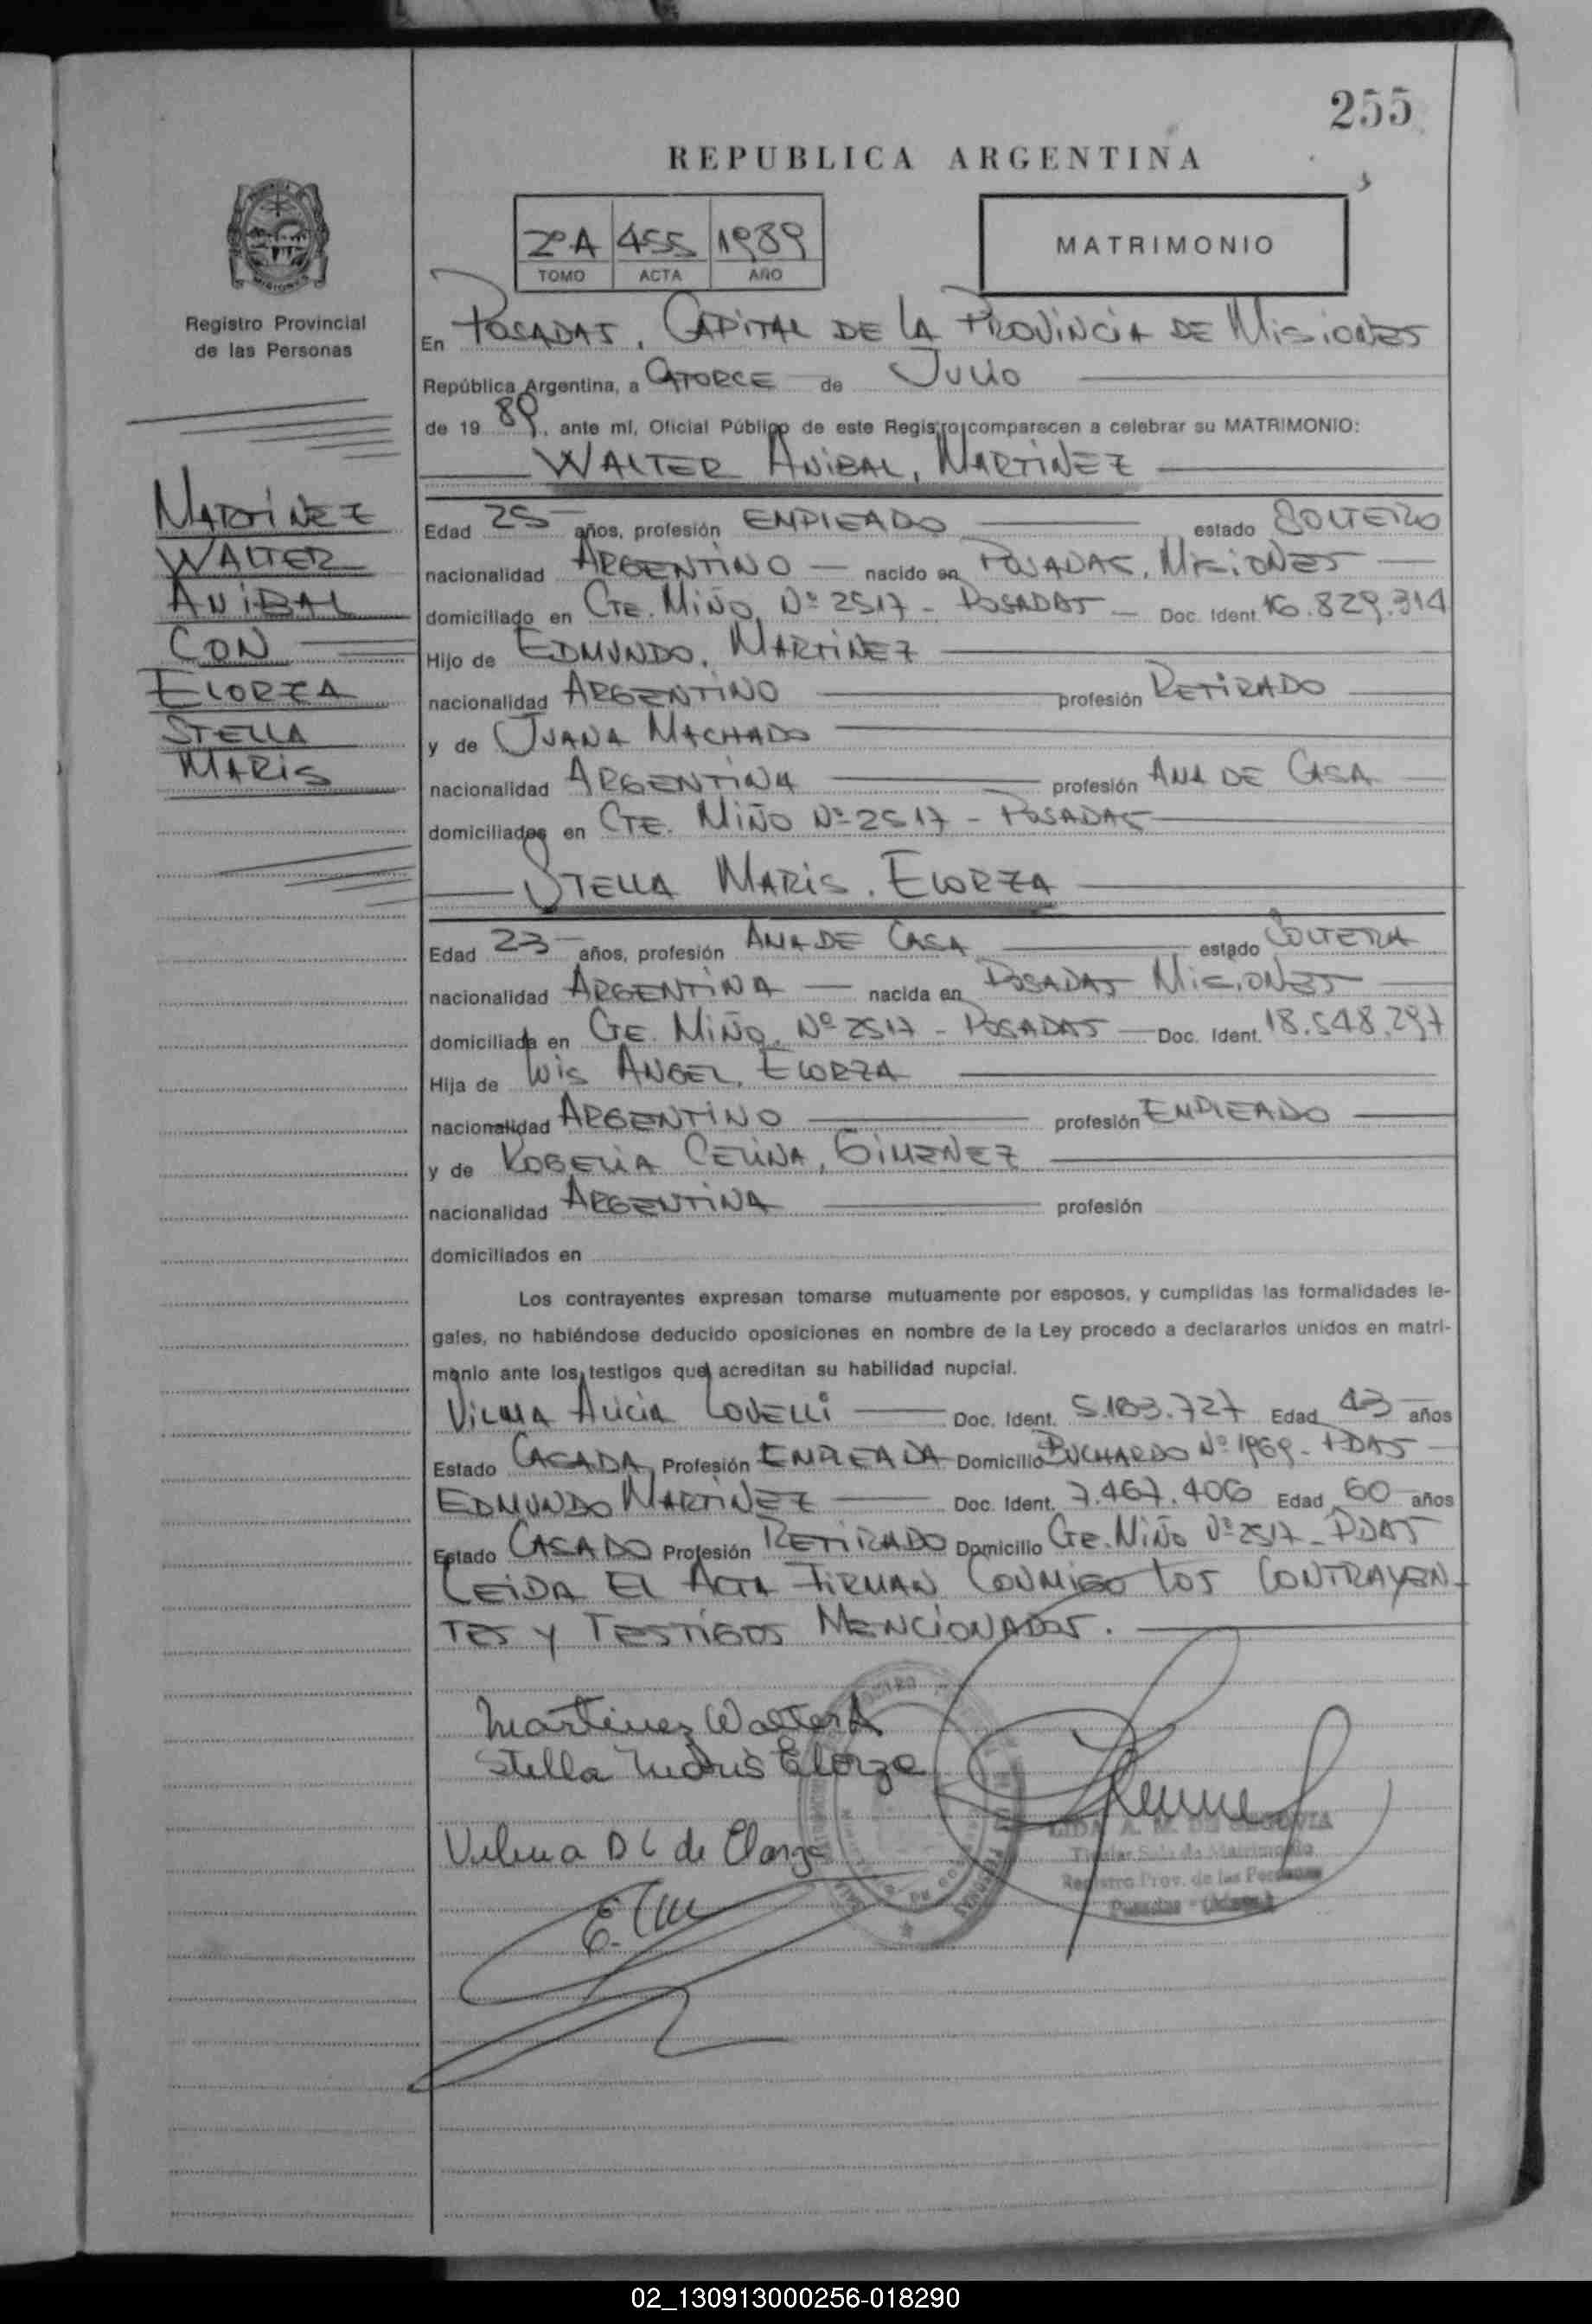 255
REPUBLICA ARGENTINA
2º A 455 1989
TOMO ACTA AÑO
MATRIMONIO
Registro Provincial
de las Personas
MARTINEZ
WALTER
ANIBAL
CON
ELORZA
STELLA
MARIS
En POSADAS, CAPITAL DE LA PROVINCIA DE MISIONES
República Argentina, a CATORCE de JULIO
de 19 89, ante mí, Oficial Público de este Registro comparecen a celebrar su MATRIMONIO:
WALTER ANIBAL, MARTINEZ
Edad 25 años, profesión EMPLEADO estado SOLTERO
nacionalidad ARGENTINO nacido en POSADAS, MISIONES
domiciliado en CTE. MIÑO, Nº 2517 - POSADAS Doc. Ident. 16.829.314
Hijo de EDMUNDO, MARTINEZ
nacionalidad ARGENTINO profesión RETIRADO
y de JUANA MACHADO
nacionalidad ARGENTINA profesión AMA DE CASA
domiciliados en CTE. MIÑO Nº 2517 - POSADAS
STELLA MARIS, ELORZA
Edad 23 años, profesión AMA DE CASA estado SOLTERA
nacionalidad ARGENTINA nacida en POSADAS MISIONES
domiciliada en CTE. MIÑO, Nº 2517 - POSADAS Doc. Ident. 18.548.297
Hija de LUIS ANGEL, ELORZA
nacionalidad ARGENTINO profesión EMPLEADO
y de ROGELIA CELINA, GIMENEZ
nacionalidad ARGENTINA profesión
domiciliados en
Los contrayentes expresan tomarse mutuamente por esposos, y cumplidas las formalidades le-
gales, no habiéndose deducido oposiciones en nombre de la Ley procedo a declararlos unidos en matri-
monio ante los testigos que acreditan su habilidad nupcial.
VILMA ALICIA LOVELLI Doc. Ident. 5.183.727 Edad 43 años
Estado CASADA, Profesión EMPLEADA Domicilio BUCHARDO Nº 1969 - PDAS
EDMUNDO MARTINEZ Doc. Ident. 7.467.406 Edad 60 años
Estado CASADO Profesión RETIRADO Domicilio CTE. MIÑO Nº 2517 - PDAS
LEIDA EL ACTA FIRMAN CONMIGO LOS CONTRAYEN-
TES Y TESTIGOS MENCIONADOS.
Martinez Walter A
Stella Maris Elorza
Vilma D L de Elorza
LIDA A. M. DE SEGOVIA
Titular Sala de Matrimonio
Registro Prov. de las Personas
Posadas - (Mnes.)
02_130913000256-018290